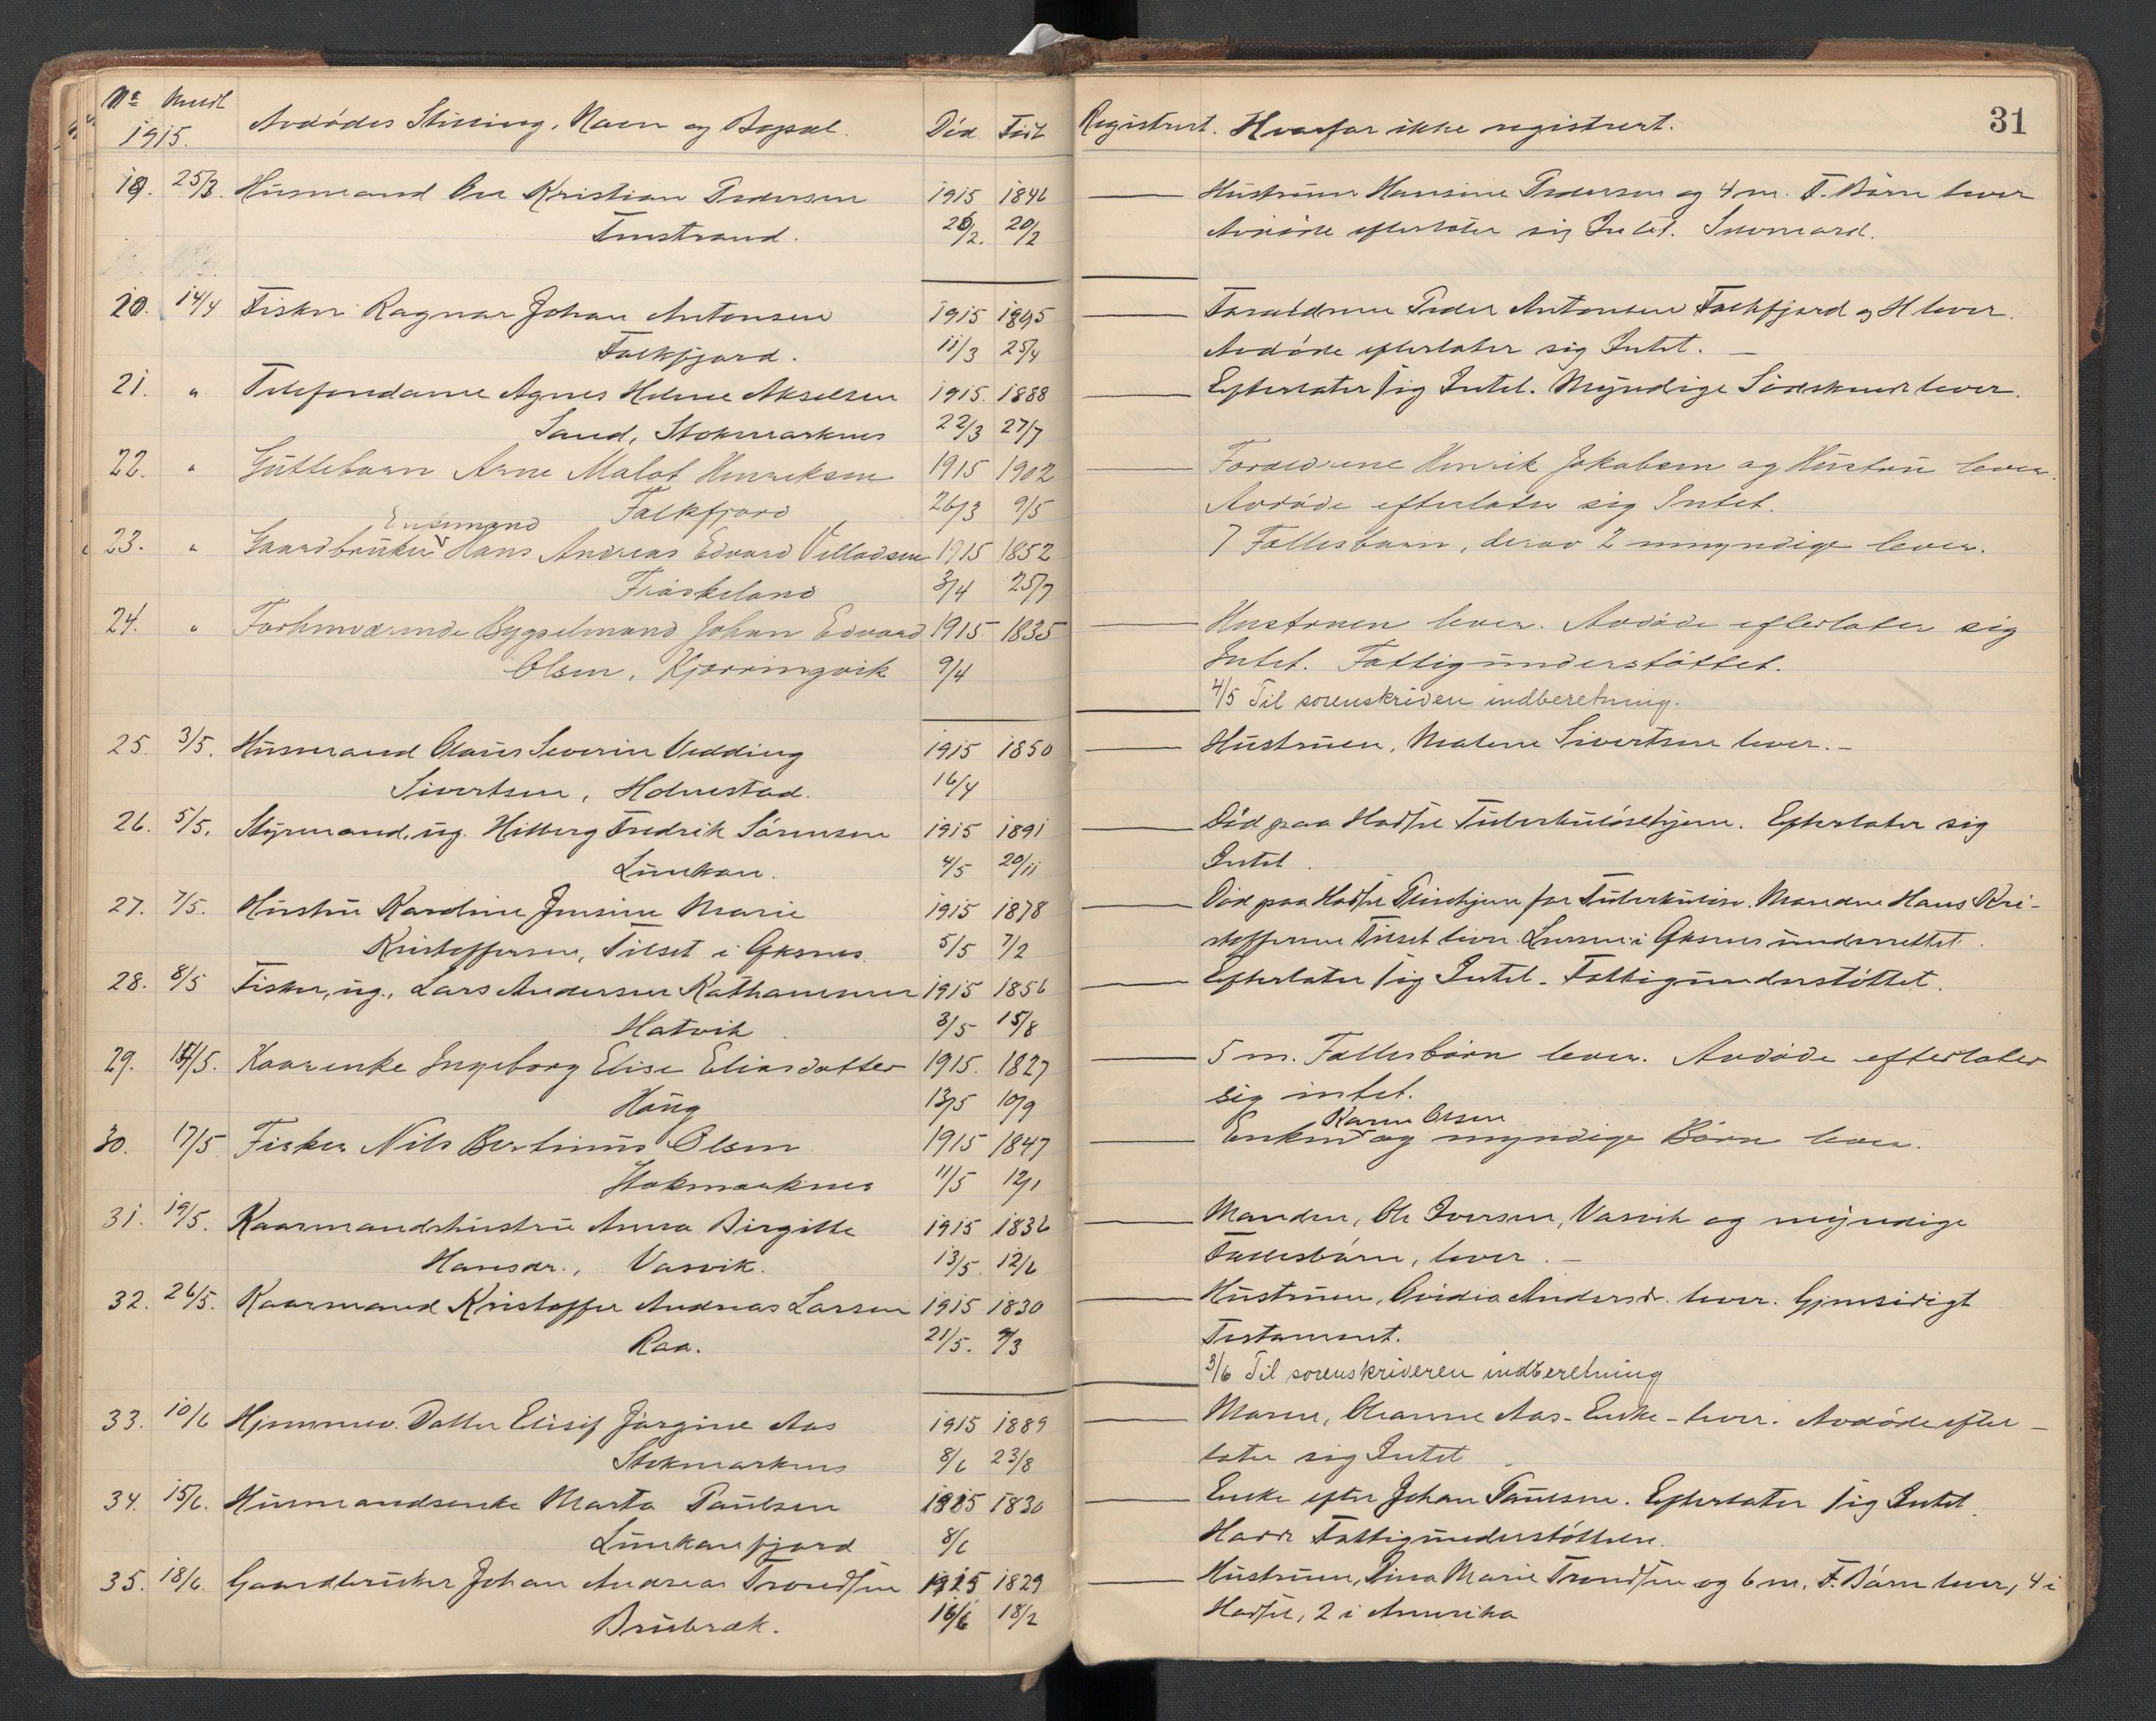 31
No Meldt Avdødes Stilling, Navn og Bopæl. Død Født Registrert. Hvorfor ikke registrert.
1915.
19. 25/3. Husmand Ole Kristian Pedersen 1915 1846 Hustruen Hansine Pedersen og 4 m. F. Børn lever
26/2. 20/2 Avdøde efterlater sig Intet.
20. 14/4 Fisker Ragnar Johan Antonsen 1915 1895 Forældrene Peder Antonsen Falkfjord og H lever.
Falkfjord. 11/3 25/4 Avdøde efterlater sig Intet. —
21. " Telefondame Agnes Helene Akselsen 1915. 1888 Efterlater sig Intet. Myndige Sødskende lever.
Sand, Stokmarknes 22/3 27/7
22. " Guttebarn Arne Malot Henriksen 1915 1902 Forældrene Henrik Jakobsen og Hustru lever.
Falkfjord 26/3 9/5 Avdøde efterlater sig Intet.
Enkemand
23. " Gaardbruker Hans Andreas Edvard Villadsen 1915 1852 7 Fællesbarn, derav 2 umyndige lever.
Frøskeland 3/4 25/7
24. " Forhenværende Bygselmand Johan Edvard 1915 1835 Hustruen lever. Avdøde efterlater sig
Olsen, Kjørringvik 9/4 Intet. Fattigunderstøttet.
4/5 Til sorenskriveren indberetning.
25. 3/5. Husmand Olaus Severin Vedding 1915 1850 Hustruen, Malene Sivertsen lever. —
Sivertsen, Holmestad. 16/4
26. 5/5. Styrmand, ug. Hilberg Fredrik Sørensen 1915 1891 Død paa Hadsel Tuberkuløsehjem. Efterlater sig
Lunkan. 4/5 20/11 Intet.
27. 7/5. Hustru Karoline Jensine Marie 1915 1878 Død paa Hadsel Pleiehjem for Tuberkuløse. Manden Hans Kri-
Kristoffersen, Tilset i Øksnes. 5/5 7/2 stoffersen Tilset lever. Lensm. i Øksnes underrettet.
28. 8/5 Fisker, ug., Lars Andersen Kathansen 1915 1856 Efterlater sig Intet. Fattigunderstøttet.
Hatvik 3/5 15/8
29. 14/5. Kaarenke Ingeborg Elise Eliasdatter 1915. 1827 5 m. Fællesbørn lever. Avdøde efterlater
Haug 13/5 10/9 sig intet.
Karen Olsen
30. 17/5 Fisker Nils Bertinus Olsen 1915 1847 Enken og myndige Børn lever.
Stokmarknes 11/5 12/1
31. 19/5. Kaarmandshustru Anna Birgitte 1915 1836 Manden, Ole Iversen, Vasvik og myndige
Hansdr., Vasvik. 13/5. 12/6 Fællesbørn, lever. —
32. 26/5. Kaarmand Kristoffer Andreas Larsen 1915 1830 Hustruen, Ovidia Andersdr. lever. Gjensidigt
Raa. 21/5. 9/3 Testament.
3/6 Til sorenskriveren indberetning
33. 10/6 Hjemmev. Datter Elisif Jørgine Aas 1915 1889 Moren, Oleanne Aas - Enke - lever. Avdøde efter-
Stokmarknes 8/6 23/8 later sig Intet
34. 15/6. Husmandsenke Marta Paulsen 1915 1830 Enke efter Johan Paulsen. Efterlater sig Intet.
Lunkanfjord 8/6 Havde Fattigunderstøttelse.
35. 18/6. Gaardbruker Johan Andreas Trondsen 1915 1829 Hustruen, Dina Marie Trondsen og 6 m. F. Børn lever, 4 i
Brusbræk. 16/6 18/2 Hadsel, 2 i Amerika